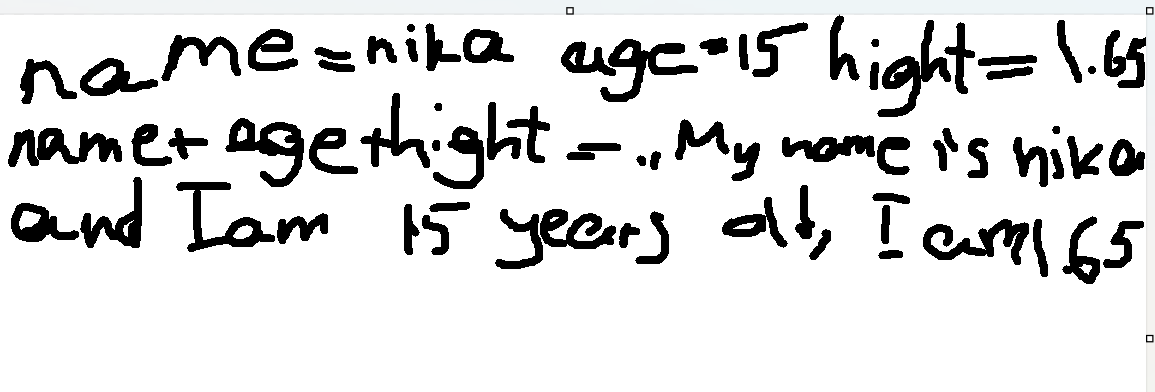 name = nika age = 15 hight = 1.65
name + age + hight = ,, My name is nika
and I am 15 years old, I am 1.65